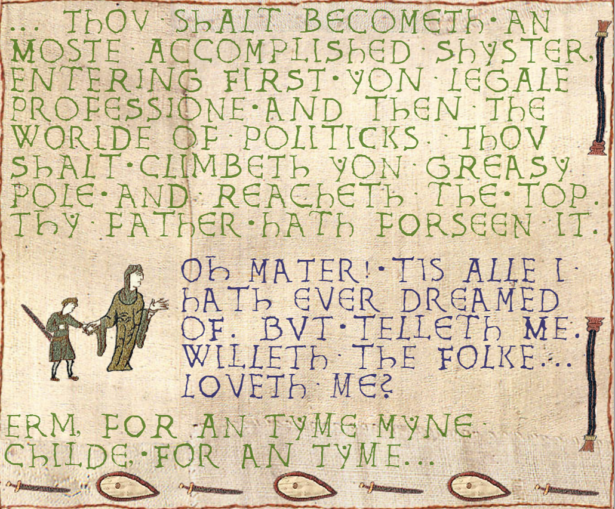 ... THOV SHALT BECOMETH · AN
MOSTE ACCOMPLISHED SHYSTER,
ENTERING FIRST · YON · LEGALE
PROFESSIONE · AND THEN · THE
WORLDE OF · POLITICKS · THOV
SHALT · CLIMBETH YON · GREASY
POLE · AND · REACHETH THE · TOP.
THY FATHER · HATH FORSEEN IT.
OH MATER! · TIS ALLE I ·
HATH EVER DREAMED
OF. BVT · TELLETH ME.
WILLETH · THE FOLKE...
LOVETH · ME?
ERM, FOR · AN TYME MYNE
CHILDE, · FOR AN TYME...